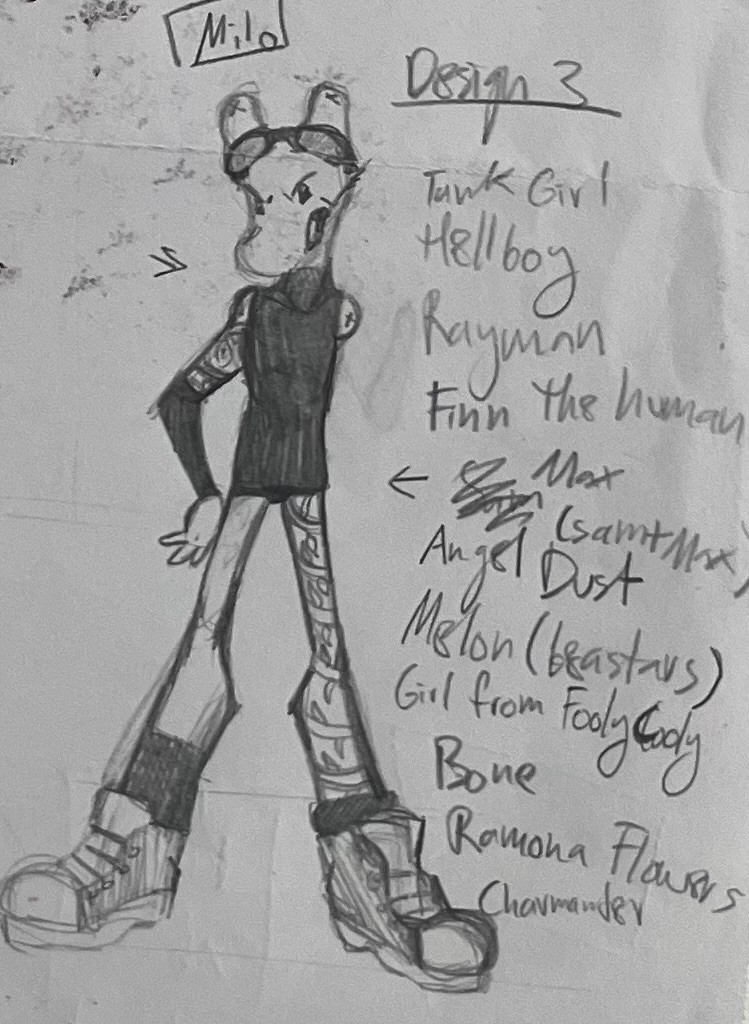 Milo
Design 3
Tank Girl
Hellboy
Rayman
Finn the human
Max
(sam+Max)
Angel Dust
Melon (beastars)
Girl from Fooly Cooly
Bone
Ramona Flowers
Charmander